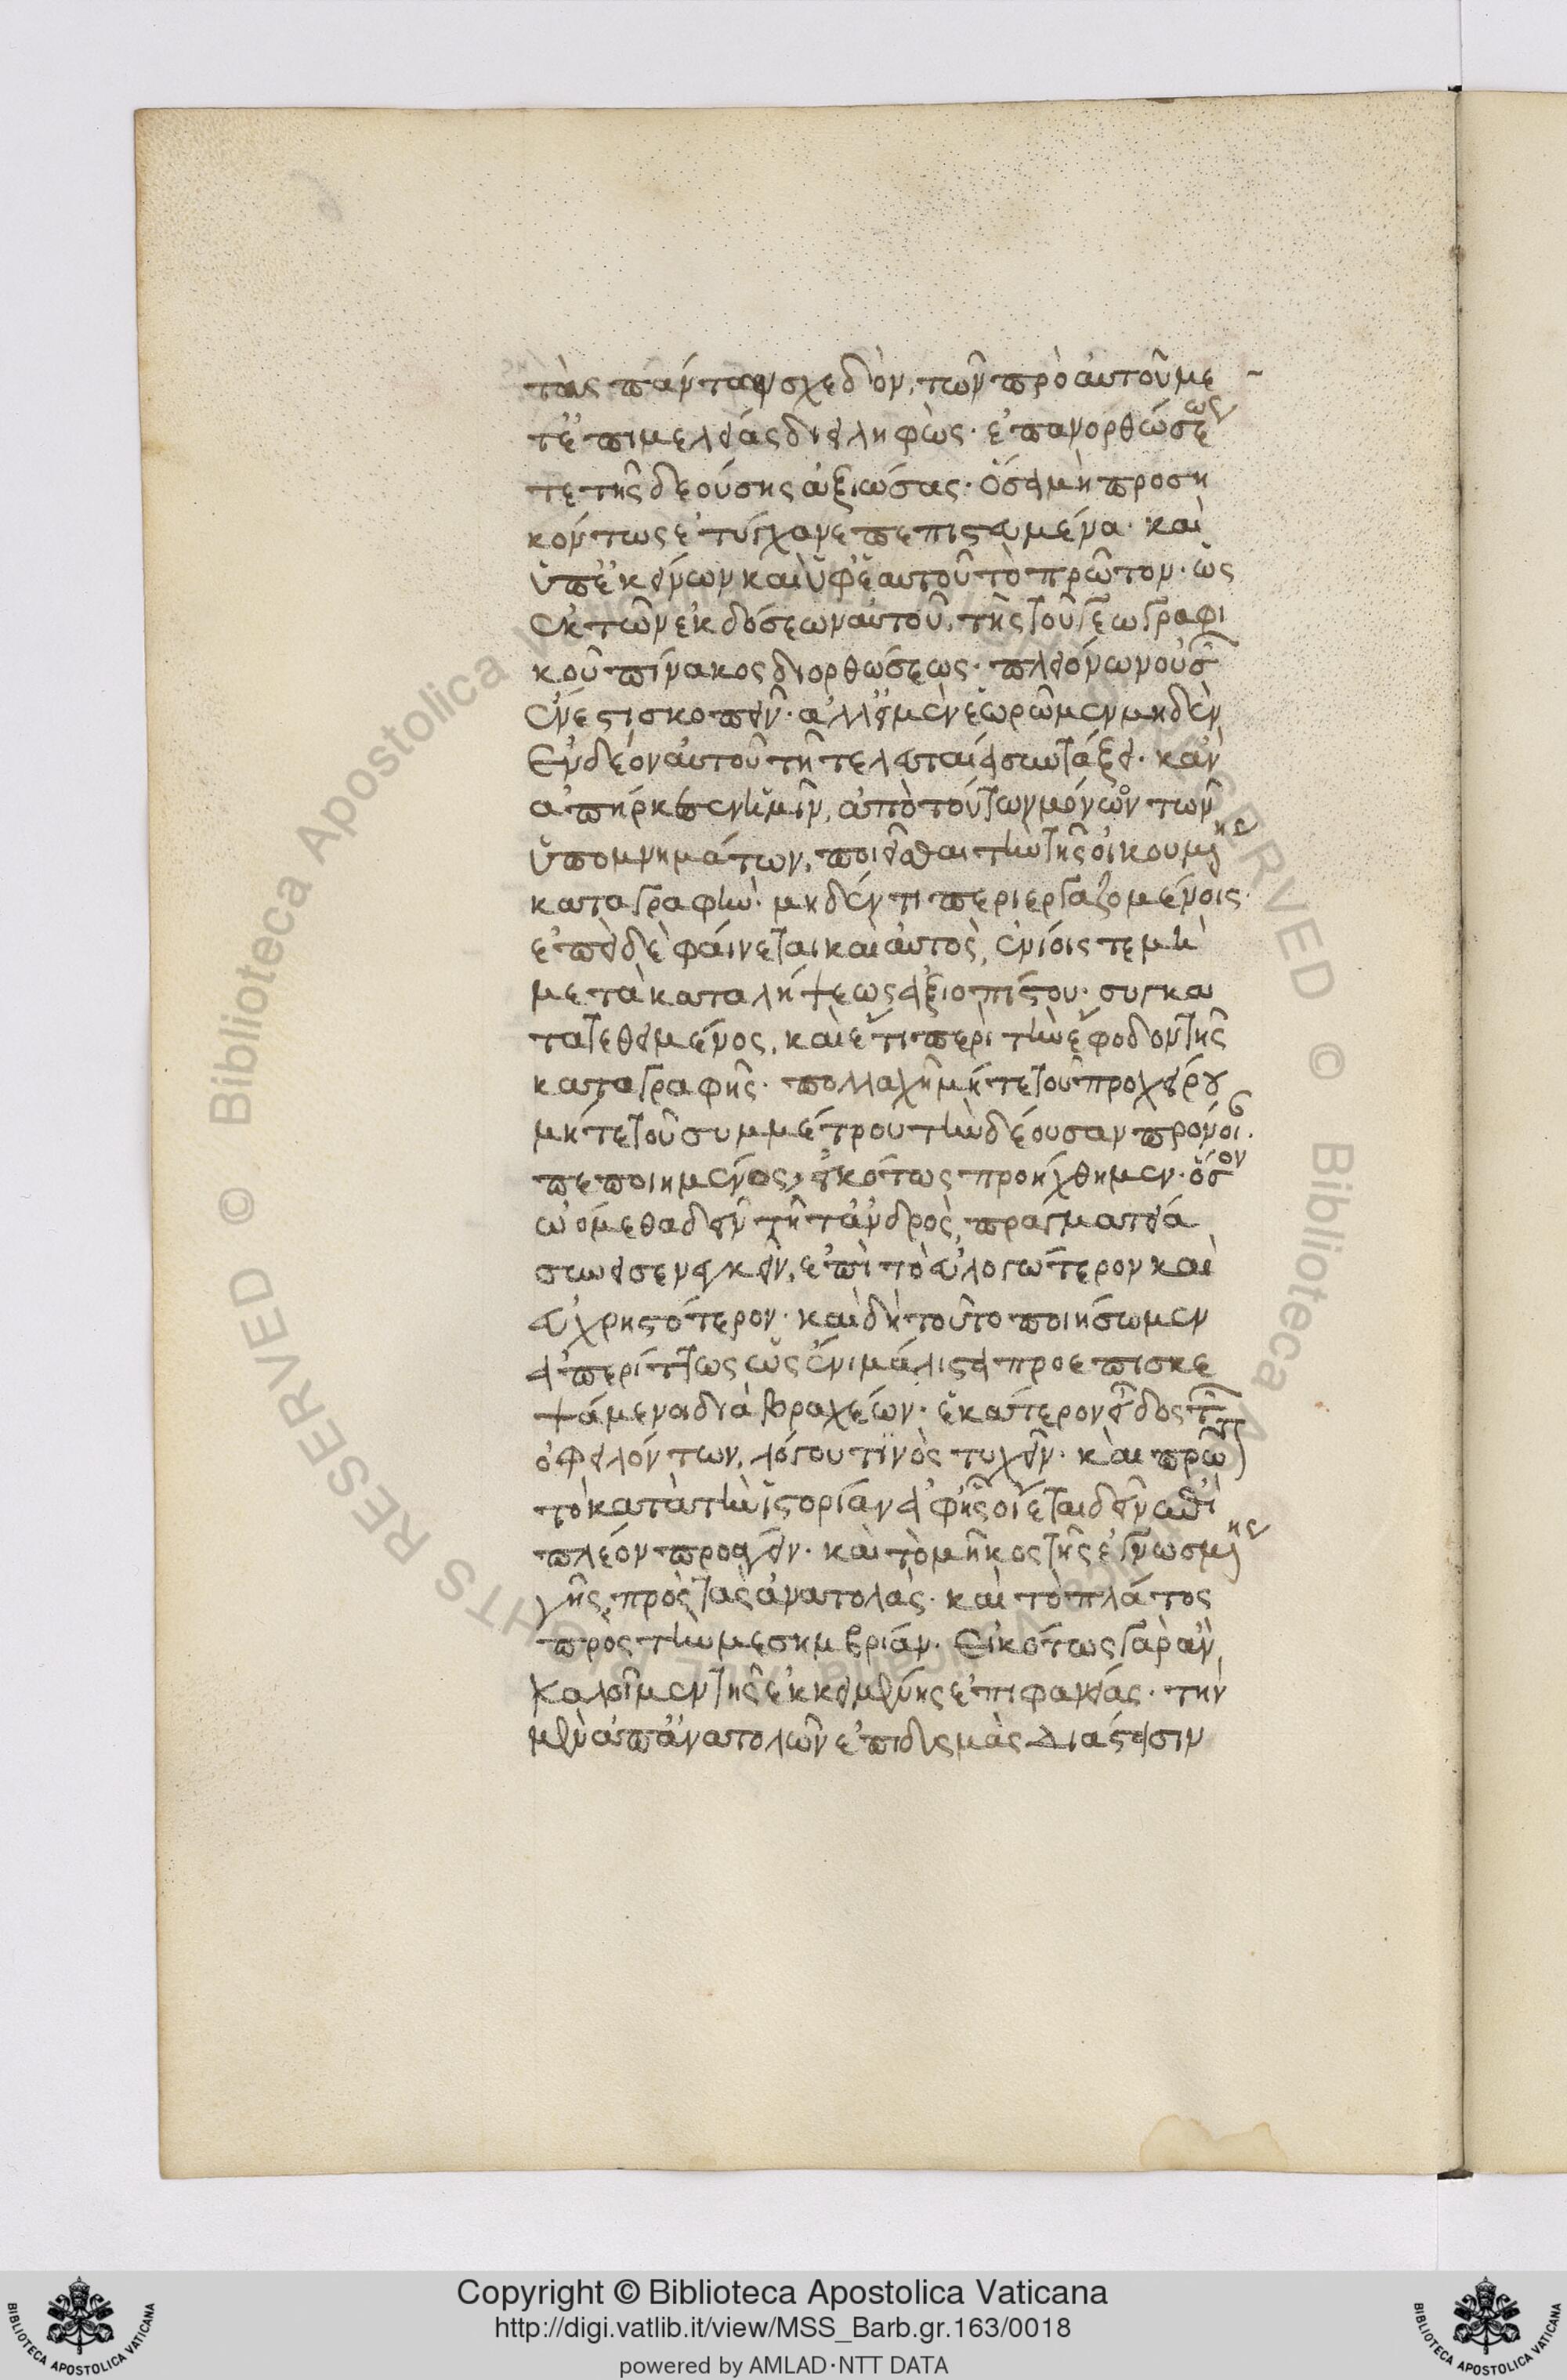 τὰς πάντων σχεδὸν, τῶν πρὸ αὐτοῦ με
τ' ἐπιμελείας διειληφὼς· ἐπανορθώσεως
τε τῆς δεούσης ἀξιώσας· ὅσα μὴ προση
κόντως ἐτύγχανε πεπιστευμένα· καὶ
ὑπ' ἐκείνων καὶ ὑφ' ἑαυτοῦ τὸ πρῶτον· ὡς
ἐκ τῶν ἐκδόσεων αὐτοῦ, τῆς τοῦ γεωγραφι
κοῦ πίνακος διορθώσεως· πλειόνων οὐσῶν
ἔνεστι σκοπεῖν· ἀλλ' εἰ μὲν ἑωρῶμεν μηδὲν
ἐνδέον αὐτοῦ τῇ τελευταίᾳ συντάξει· κἂν
ἀπήρκεσεν ἡμῖν, ἀπὸ τούτων μόνων τῶν
ὑπομνημάτων, ποιεῖσθαι τὴν τῆς οἰκουμένης
καταγραφὴν· μηδέν τι περιεργαζομένοις·
ἐπεὶ δὲ φαίνεται καὶ αὐτὸς, ἐνίοις τε μὴ
μετὰ καταλήψεως ἀξιοπίστου· συγκα
τατεθειμένος, καὶ ἔτι περὶ τὴν ἔφοδον τῆς
καταγραφῆς· πολλαχῆ μήτε τοῦ προχείρου
μήτε τοῦ συμμέτρου τὴν δέουσαν πρόνοιαν·
πεποιημένος, εἰκότως προήχθημεν· ὅσον
ᾠόμεθα δεῖν τῇ τἀνδρὸς, πραγματείᾳ
συνεισενεγκεῖν, ἐπὶ τὸ εὐλογώτερον καὶ
εὐχρηστότερον· καὶ δὴ τοῦτο ποιήσωμεν
ἀπερίττως ὡς ἔνι μάλιστα προεπισκε
ψάμενοι διὰ βραχέων· ἑκάτερον εἶδος τῶν
ὀφειλόντων, λόγου τινὸς τυχεῖν· καὶ πρῶτον
τὸ κατὰ τὴν ἱστορίαν ἀφ' ἧς οἴεται δεῖν ἐπὶ
πλέον προάγειν· καὶ τὸ μῆκος τῆς ἐγνωσμένης
γῆς, πρὸς τὰς ἀνατολὰς· καὶ τὸ πλάτος
πρὸς τὴν μεσημβρίαν· Εἰκότως γὰρ ἂν,
καλοῖμεν τῆς ἐκκειμένης ἐπιφανείας· τὴν
μὲν ἀπ' ἀνατολῶν ἐπὶ δυσμὰς διάστασιν
Copyright © Biblioteca Apostolica Vaticana
http://digi.vatlib.it/view/MSS_Barb.gr.163/0018
powered by AMLAD·NTT DATA